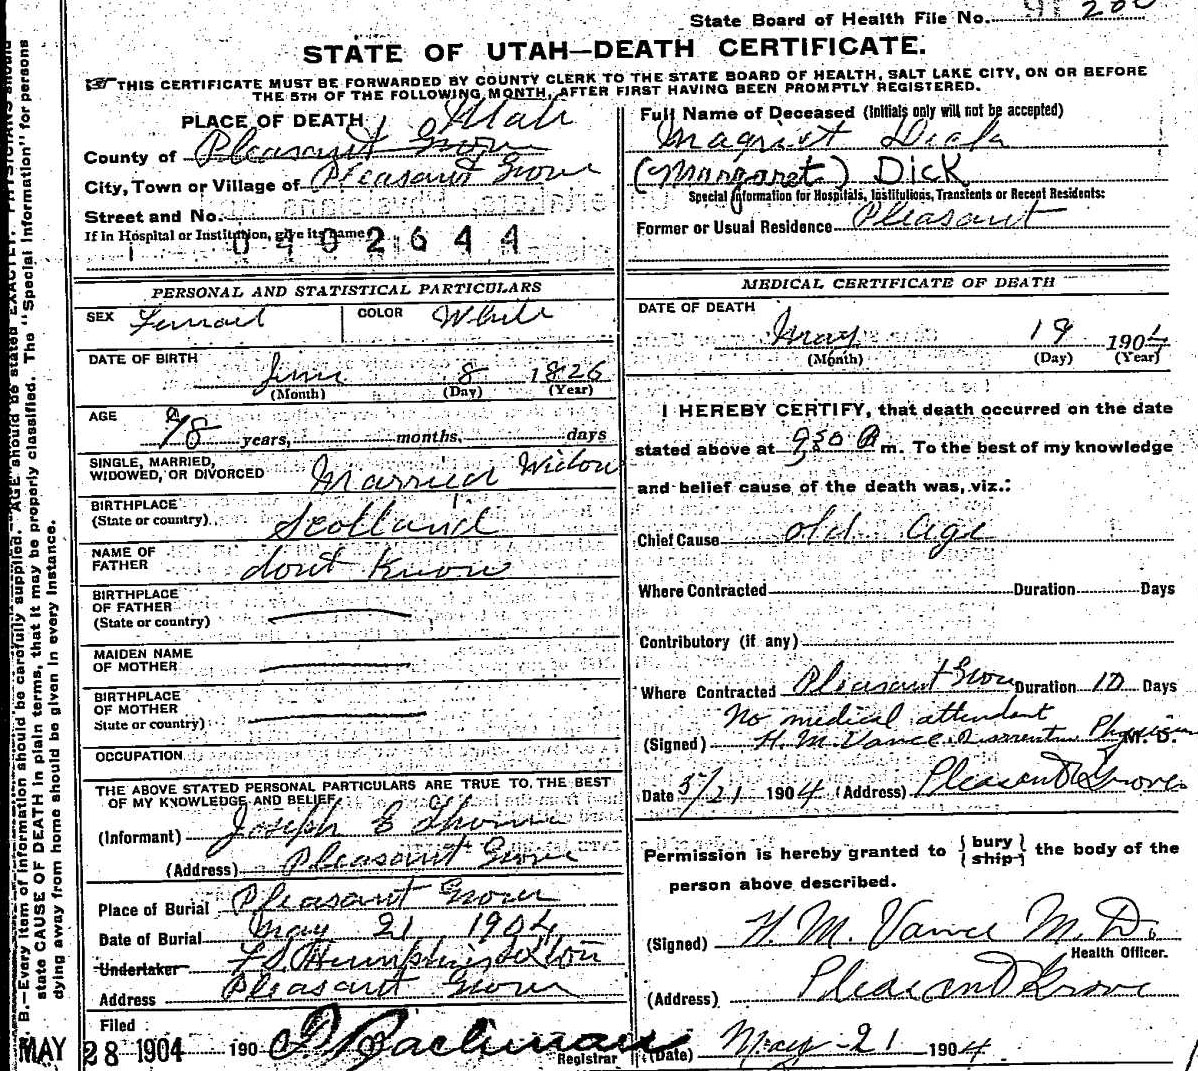 State Board of Health File No.
STATE OF UTAH—DEATH CERTIFICATE.
THIS CERTIFICATE MUST BE FORWARDED BY COUNTY CLERK TO THE STATE BOARD OF HEALTH, SALT LAKE CITY, ON OR BEFORE
THE 5TH OF THE FOLLOWING MONTH, AFTER FIRST HAVING BEEN PROMPTLY REGISTERED.
PLACE OF DEATH Utah
County of Pleasant Grove
City, Town or Village of Pleasant Grove
Street and No.
If in Hospital or Institution, give its name
0402644
Full Name of Deceased (Initials only will not be accepted)
Magriet Dick
(Margaret) DICK
Special Information for Hospitals, Institutions, Transients or Recent Residents:
Former or Usual Residence Pleasant
PERSONAL AND STATISTICAL PARTICULARS
SEX Femail COLOR White
DATE OF BIRTH
June 8 1826
(Month) (Day) (Year)
AGE
78 years, months, days
SINGLE, MARRIED,
WIDOWED, OR DIVORCED Married Widow
BIRTHPLACE
(State or country) Scotland
NAME OF
FATHER dont Know
BIRTHPLACE
OF FATHER
(State or country)
MAIDEN NAME
OF MOTHER
BIRTHPLACE
OF MOTHER
State or country)
OCCUPATION
THE ABOVE STATED PERSONAL PARTICULARS ARE TRUE TO THE BEST
OF MY KNOWLEDGE AND BELIEF
(Informant) Joseph E Thorne
(Address) Pleasant Grove
Place of Burial Pleasant Grove
Date of Burial May 21 1904
Undertaker Sexton
Address Pleasant Grove
Filed
MAY 28 1904 190
Registrar
MEDICAL CERTIFICATE OF DEATH
DATE OF DEATH
May 19 1904
(Month) (Day) (Year)
I HEREBY CERTIFY, that death occurred on the date
stated above at 9 30 P m. To the best of my knowledge
and belief cause of the death was, viz.:
Chief Cause old age
Where Contracted Duration Days
Contributory (if any)
Where Contracted Pleasant Grove Duration 10 Days
No medical attendent
(Signed) H. M. Vance Physician M. D.
Date 5/21 1904 (Address) Pleasant Grove
Permission is hereby granted to { bury } the body of the
{ ship }
person above described.
(Signed) H. M. Vance M. D.
Health Officer.
(Address) Pleasant Grove
(Date) May-21 1904
B.—Every item of information should be carefully supplied. AGE should be stated EXACTLY. PHYSICIANS should
state CAUSE OF DEATH in plain terms, that it may be properly classified. The "Special Information" for persons
dying away from home should be given in every instance.